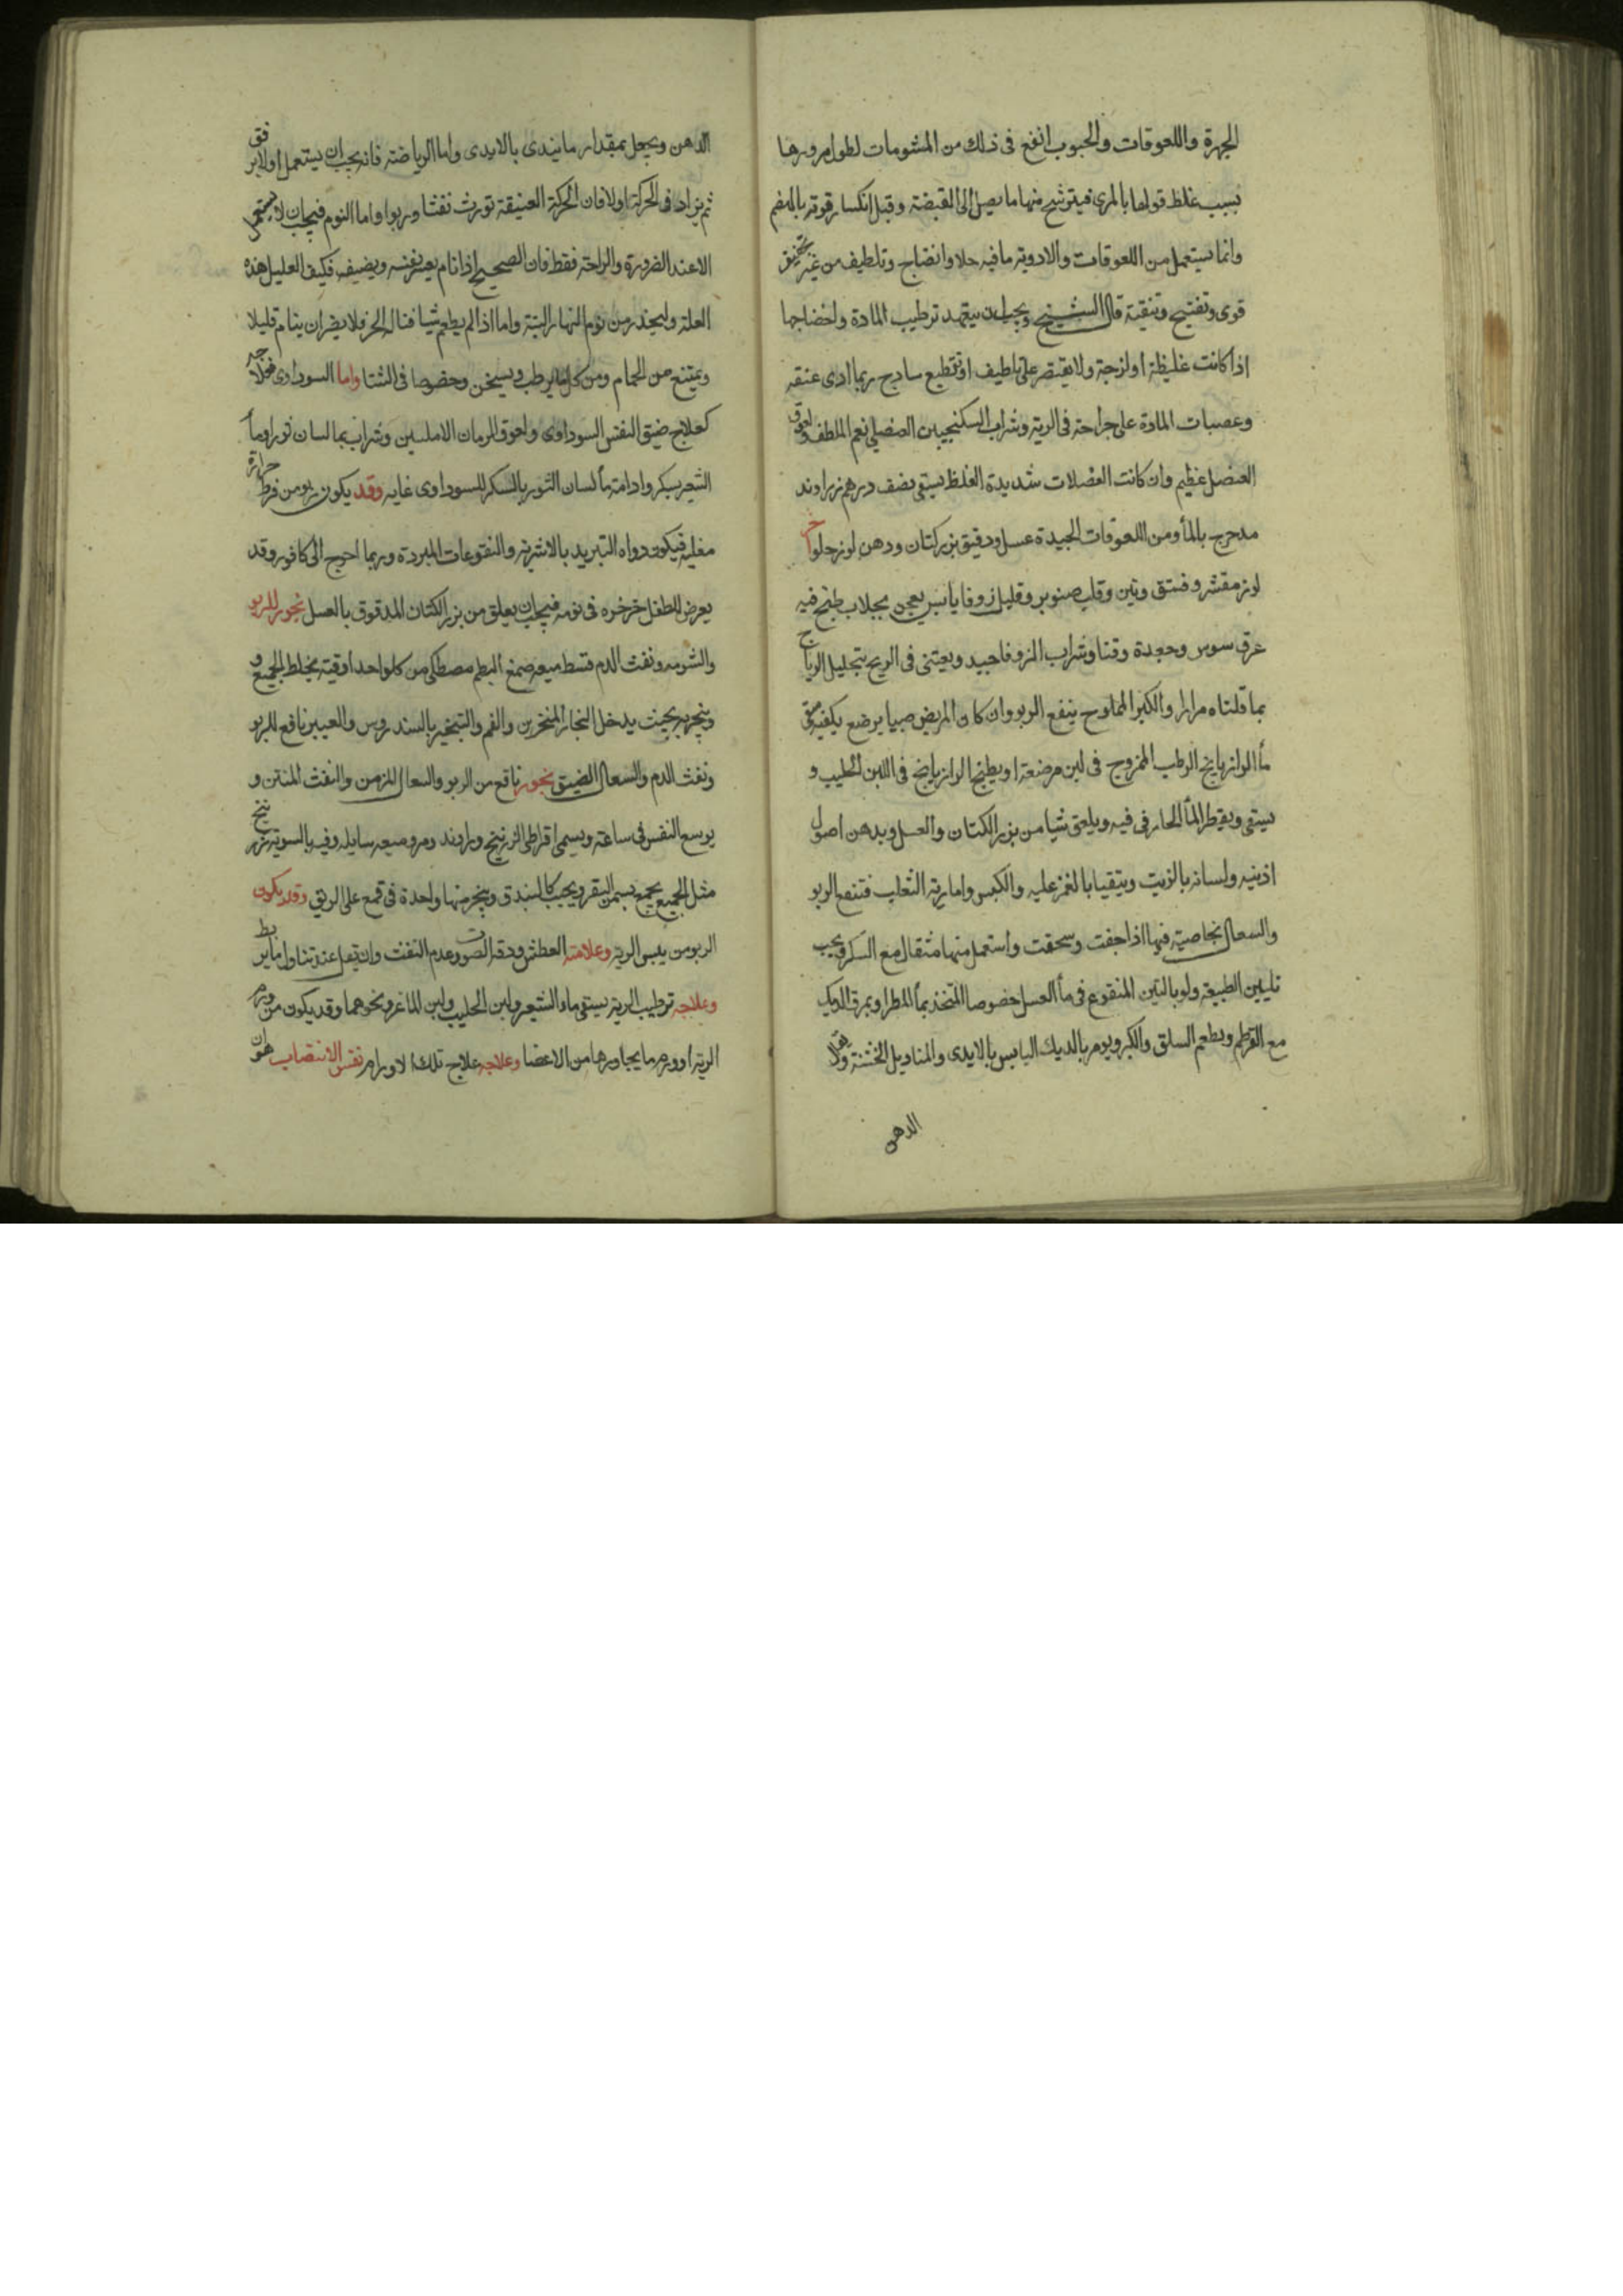 الجهرة واللعوقات والحبوب انفع فى ذلك من المشومات لطول مرورها
بسبب غلظ قوامها بالمرى فيترشح منها ما يصل الى القبضة وقبل انكسار قوته بالهضم
وانما يستعمل من اللعوقات والادوية ما فيه جلا وانضاج وتلطيف من غير تجفيف
قوى وتفتيح وتنقية قال الشيخ ويجب ان يتعهد ترطيب المادة وانضاجها
اذا كانت غليظة او لزجة ولا يقتصر على تلطيف او تقطيع ساذج ربما ادى عنفه
وعصيات المادة على جراحة فى الرية وشراب السكنجبين العنصلى نعم الملطف ولعوق
العنصل عظيم وان كانت العضلات شديدة الغلظ يستقى نصف درهم زراوند
مدحرج بالمأ ومن اللعوقات الجيدة عسل ودقيق بزر كتان ودهن لوز حلو اخر
لوز مقشر وفستق وتين وقلب صنوبر وقليل زوفا يابس يعجن بجلاب طبخ فيه
عرق سوس وجعدة وقنا وشراب الزوفا جيد ويعتنى فى الريح بتحليل الرياح
بما قلناه مرارا والكبر المملوح ينفع الربو وان كان المريض صبيا يرضع يكفيه سقى
مأ الرازيانج الرطب الممزوج فى لبن مرضعة او يطبخ الرازيانج فى اللبن الحليب و
يستقى ويقطر المأ الحار فى فيه ويلعق شيا من بزر الكتان والعسل ويدهن اصول
اذنيه ولسانه بالزيت ويتقيا بالغمز عليه والكبس واما رية الثعلب فتنفع الربو
والسعال بخاصية فيها اذا جففت وسحقت واستعمل منها مثقال مع السكر ويجب
تليين الطبيعة ولو بالتين المنقوع فى مأ العسل خصوصا المتخذ بمأ المطر او بمرق الديك
مع القرطم ويطعم السلق والكبر ويومر بالديك اليابس بالايدى والمناديل الخشنة ولا يقل
الدهن
الدهن ويجعل بمقدار ما يندى بالايدى واما الرياضة فانه يجب ان يستعمل اولا برفق
ثم يزاد فى الحركة اولا فان الحركة العنيفة تورث نفثا وربوا واما النوم فيجب ان لا يستعمل
الا عند الضرورة والراحة فقط فان الصحيح اذا نام يعسر نفسه ويضيف فكيف العليل هذه
العلة وليحذر من نوم النهار البتة واما اذا لم يطعم شيا فناله الحر فلا يضر ان ينام قليلا
ويمتنع من الحمام ومن كل ما يرطب ويسخن وخصوصا فى الشتا واما السوداوى فعلاجه
كعلاج ضيق النفس السوداوى ولعوق الرمان الامليسى وشراب بما لسان ثور او مأ
الشعير بسكر وادامة مأ لسان الثور بالسكر للسوداوى غايه وقد يكون ربو من فرط حرارة
مغليه فيكون دواه التبريد بالاشربة والنقوعات المبردة وربما احوج الى كافور وقد
يعرض للطفل خرخره فى نومه فيجب ان يعلق من بزر الكتان المدقوق بالعسل بخور للربو
والشومه ونفث الدم قسط ميعه صمغ البطم مصطكى من كل واحد اوقية يخلط الجميع و
ويتبخر به بحيث يدخل البخار المنخرين والفم والتبخير بالسندروس والعنبر نافع للربو
ونفث الدم والسعال الضيق بخور نافع من الربو والسعال المزمن والنفث المنتن و
يوسع النفس فى ساعته ويسمى اقراطى الزرنيخ وراوند ومر وميعه سايله وفيه بالسوية زرنيخ
مثل الجميع يجمع بسمن البقر ويحبب كالبندق ويتبخر منها واحدة فى قمع على الريق وقد يكون
الربو من يبس الرية وعلامته العطش ودقة الصوت وعدم النفث وان يقل عند تناول ما يرطب
وعلاجه ترطيب الرية يستقى ماء الشعير ولبن الحليب ولبن الماعز ونحوهما وقد يكون من ورم
الرية او ورم ما يجاورها من الاعضا وعلاجه علاج تلك الاورام نفس الانتصاب هو ان